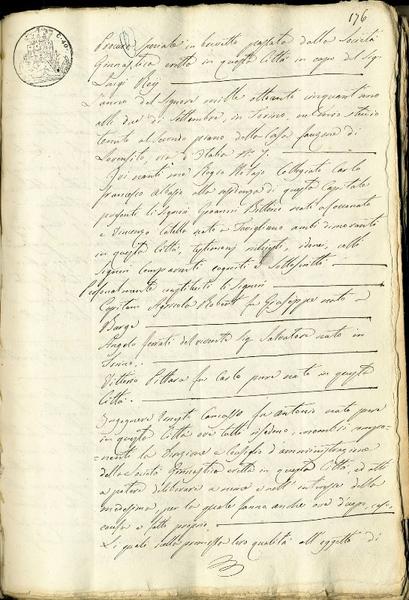 176
Procura speciale in brevetto passata dalla Società
Ginnastica eretta in questa Città in capo del Sig.
Luigi Roy
L'anno del Signore mille ottocento cinquant'uno
alli due di Settembre, in Torino, nel mio studio
tenuto al secondo piano della Casa
via d'Italia N. 7.
Qui nanti me Regio Notajo Collegiato Carlo
Francesco alla residenza di questa Capitale
presenti li Signori Giovanni nato a
e Vincenzo nato a Savigliano ambi dimoranti
in questa Città, testimonj richiesti, idonei, colli
Signori comparenti cogniti e sottoscritti
Personalmente costituiti li Signori
Capitano Agricola Roberti fu Giuseppe nato a
Barge
Angelo del vivente Sig. Salvatore nato in
Torino
Vittorio fu Carlo pure nato in questa
Città
Ingegnere Ernesto fu Antonio nato pure
in questa Città ove tutti risiedono, membri compo-
nenti la Direzione e Consiglio d'amministrazione
della Società Ginnastica eretta in questa Città, ed atti
a potere deliberare a nome e nell'interesse della
medesima, per la quale fanno anche ove d'uopo,
causa e fatto proprio,
Li quali nella premessa loro qualità all'oggetto di